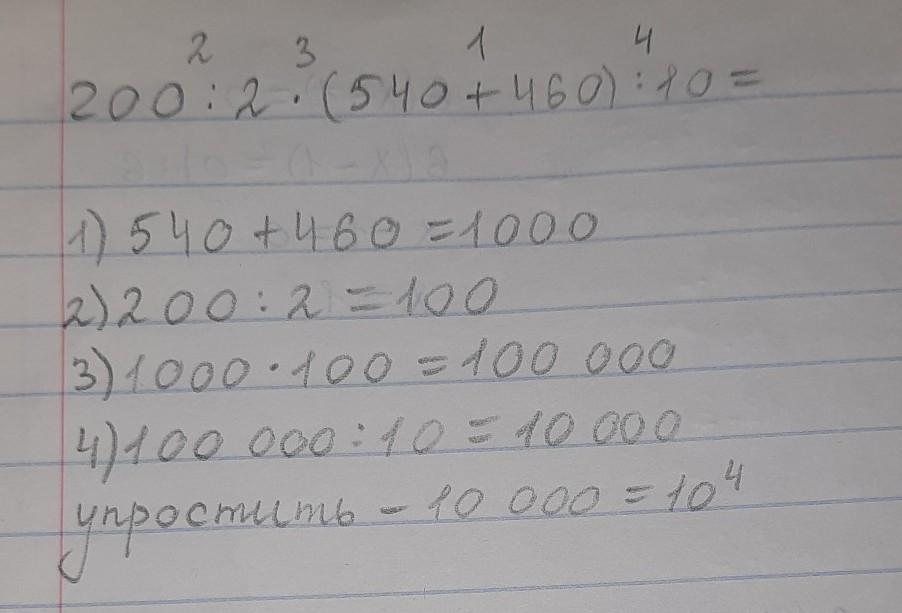 2 3 1 4
200 : 2 · (540 + 460) : 10 =
1) 540 + 460 = 1000
2) 200 : 2 = 100
3) 1000 · 100 = 100 000
4) 100 000 : 10 = 10 000
упростить - 10 000 = 10⁴